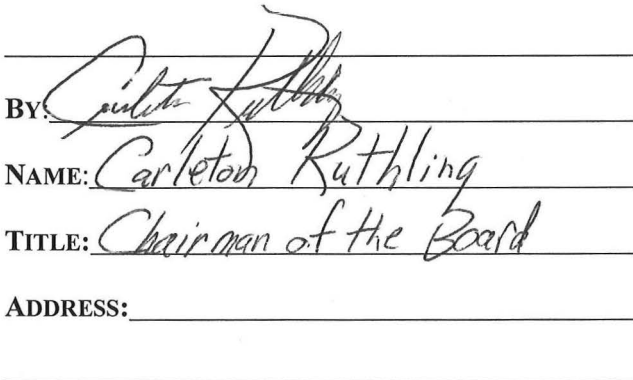 BY: Carleton Ruthling
NAME: Carleton Ruthling
TITLE: Chairman of the Board
ADDRESS: